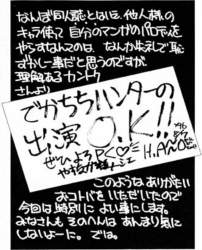 なんぼ同人誌とはいえ、他人様の
キャラ使って自分のマンガのパロディを
やらすなんてのは、なんか失礼で恥
ずかしい事だと思うのですが、
理解ある
さんより
でかちちハンターの
出演O.K!!
ぜひ
このようなありがたい
おコトバをいただいたので
今回は特別によい事にします。
みなさんもそのへんはあんまり気に
しないよーに。では。